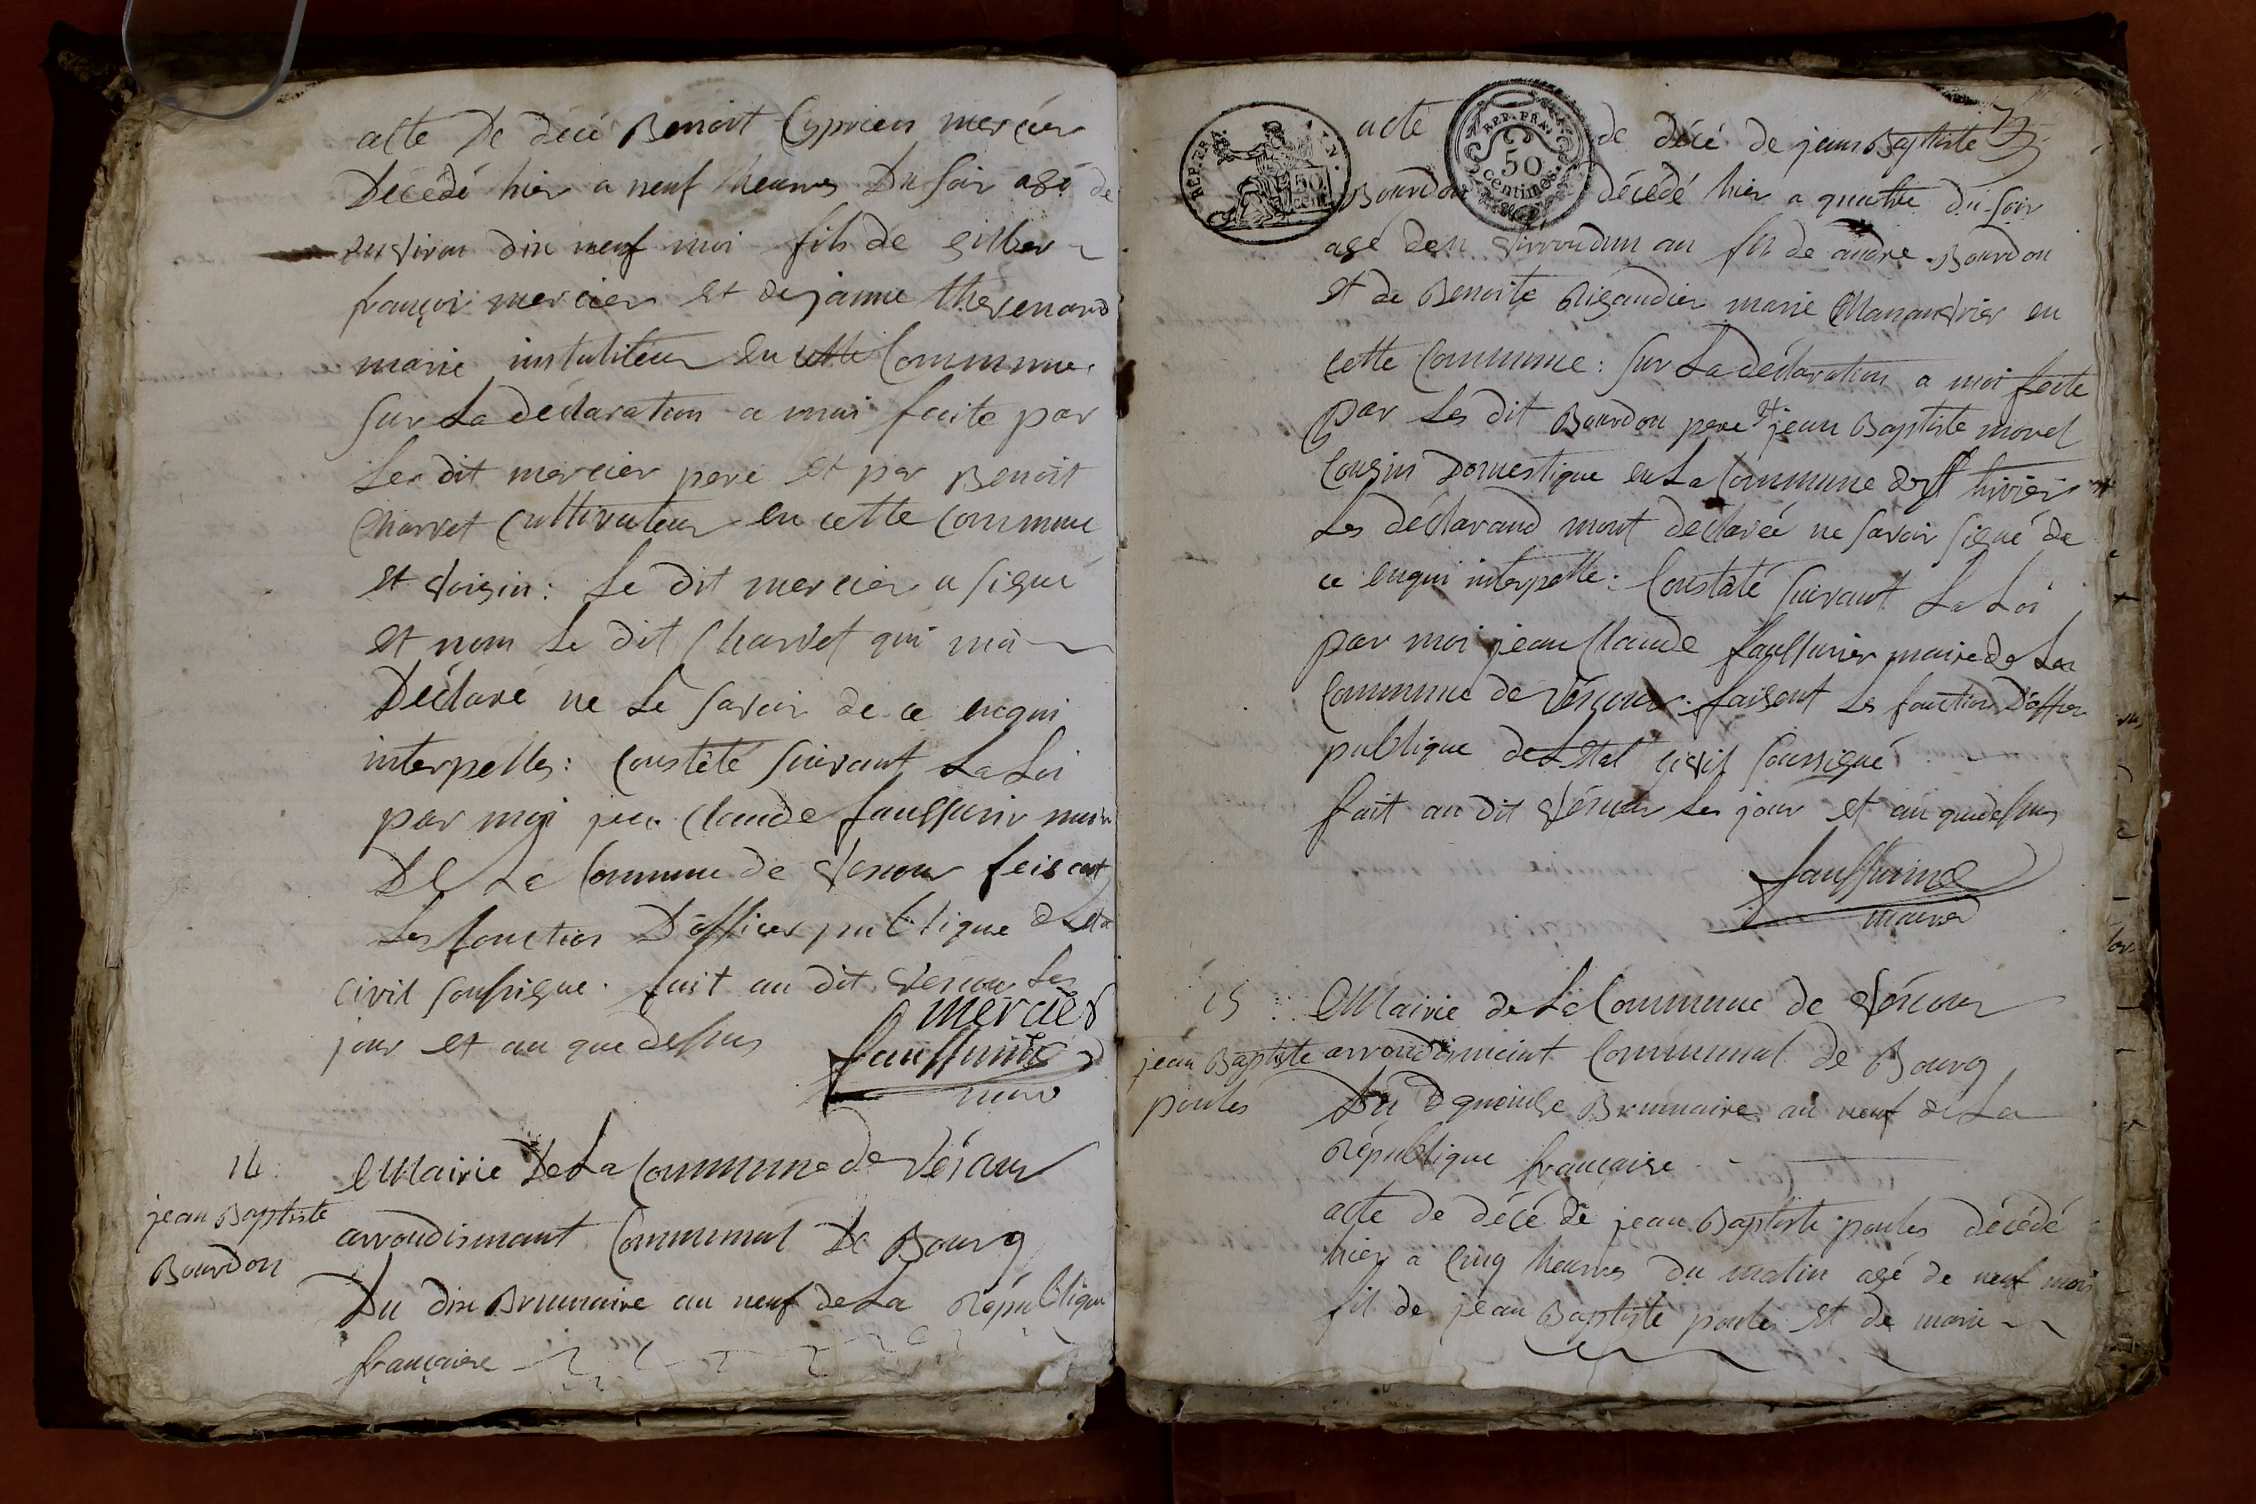 acte De décé Benoit Cyprien mercier
Décédé hier a neuf heures Du soir agé de
environ dix neuf moi fils de gilber
françoi mercier et de janne thevenard
marie instituteur en cette Commune.
sur La déclaration a moi faite par
Les dit mercier pere et par Benoit
Charvet Cultivateur en cette Commune
et voisin : Le dit mercier a signé
et nom Le dit Charvet qui ma
Déclaré ne Le savoir de ce enqui
interpelles : Constété suivant La Loi
par moi jean Claude faussurier maire
De La Commune de vescour feisent
Les fonction D'officier publique de Leta
civil soussigne . fait au dit vescour Les
jour et an que dessus
mercier
faussurier
maire
14
jean Baptiste
Bourdon
Mairie De La Commune de véscour
arrondismant Communal De Bourg
Du dix Brumaire an neuf de La République
française
REP. FRA.
50
REP. FRA.
50
centimes.
acte de décé de jean Baptiste
Bourdon décédé hier a quattre du soir
agé den virron dun an fils de andre Bourdon
et de Benoite Rigaudier marie Mananvrier en
cette Commune : sur La déclaration a moi feite
par Les dit Bourdon pere et jean Baptiste morel
Cousin Domestique en La Commune
Les déclarand mont déclaréé ne savoir signé de
ce enqui interpelle : Constaté suivant La Loi
par moi jean Claude faussurier maire de La
Commune de véscour faisent Les fonction D'officier
publique de Létat civil soussigné
fait au dit véscour Les jour et an que dessus
faussurier
maire
15
jean Baptiste
poules
Mairie de La Commune de véscour
arrondismeint Communal de Bourg
Du quinze Brumaire an neuf de La
République française
acte de décé de jean Baptiste poules décédé
hier a Cinq heures du matin agé de neuf mois
fils de jean Baptiste poules et de marie